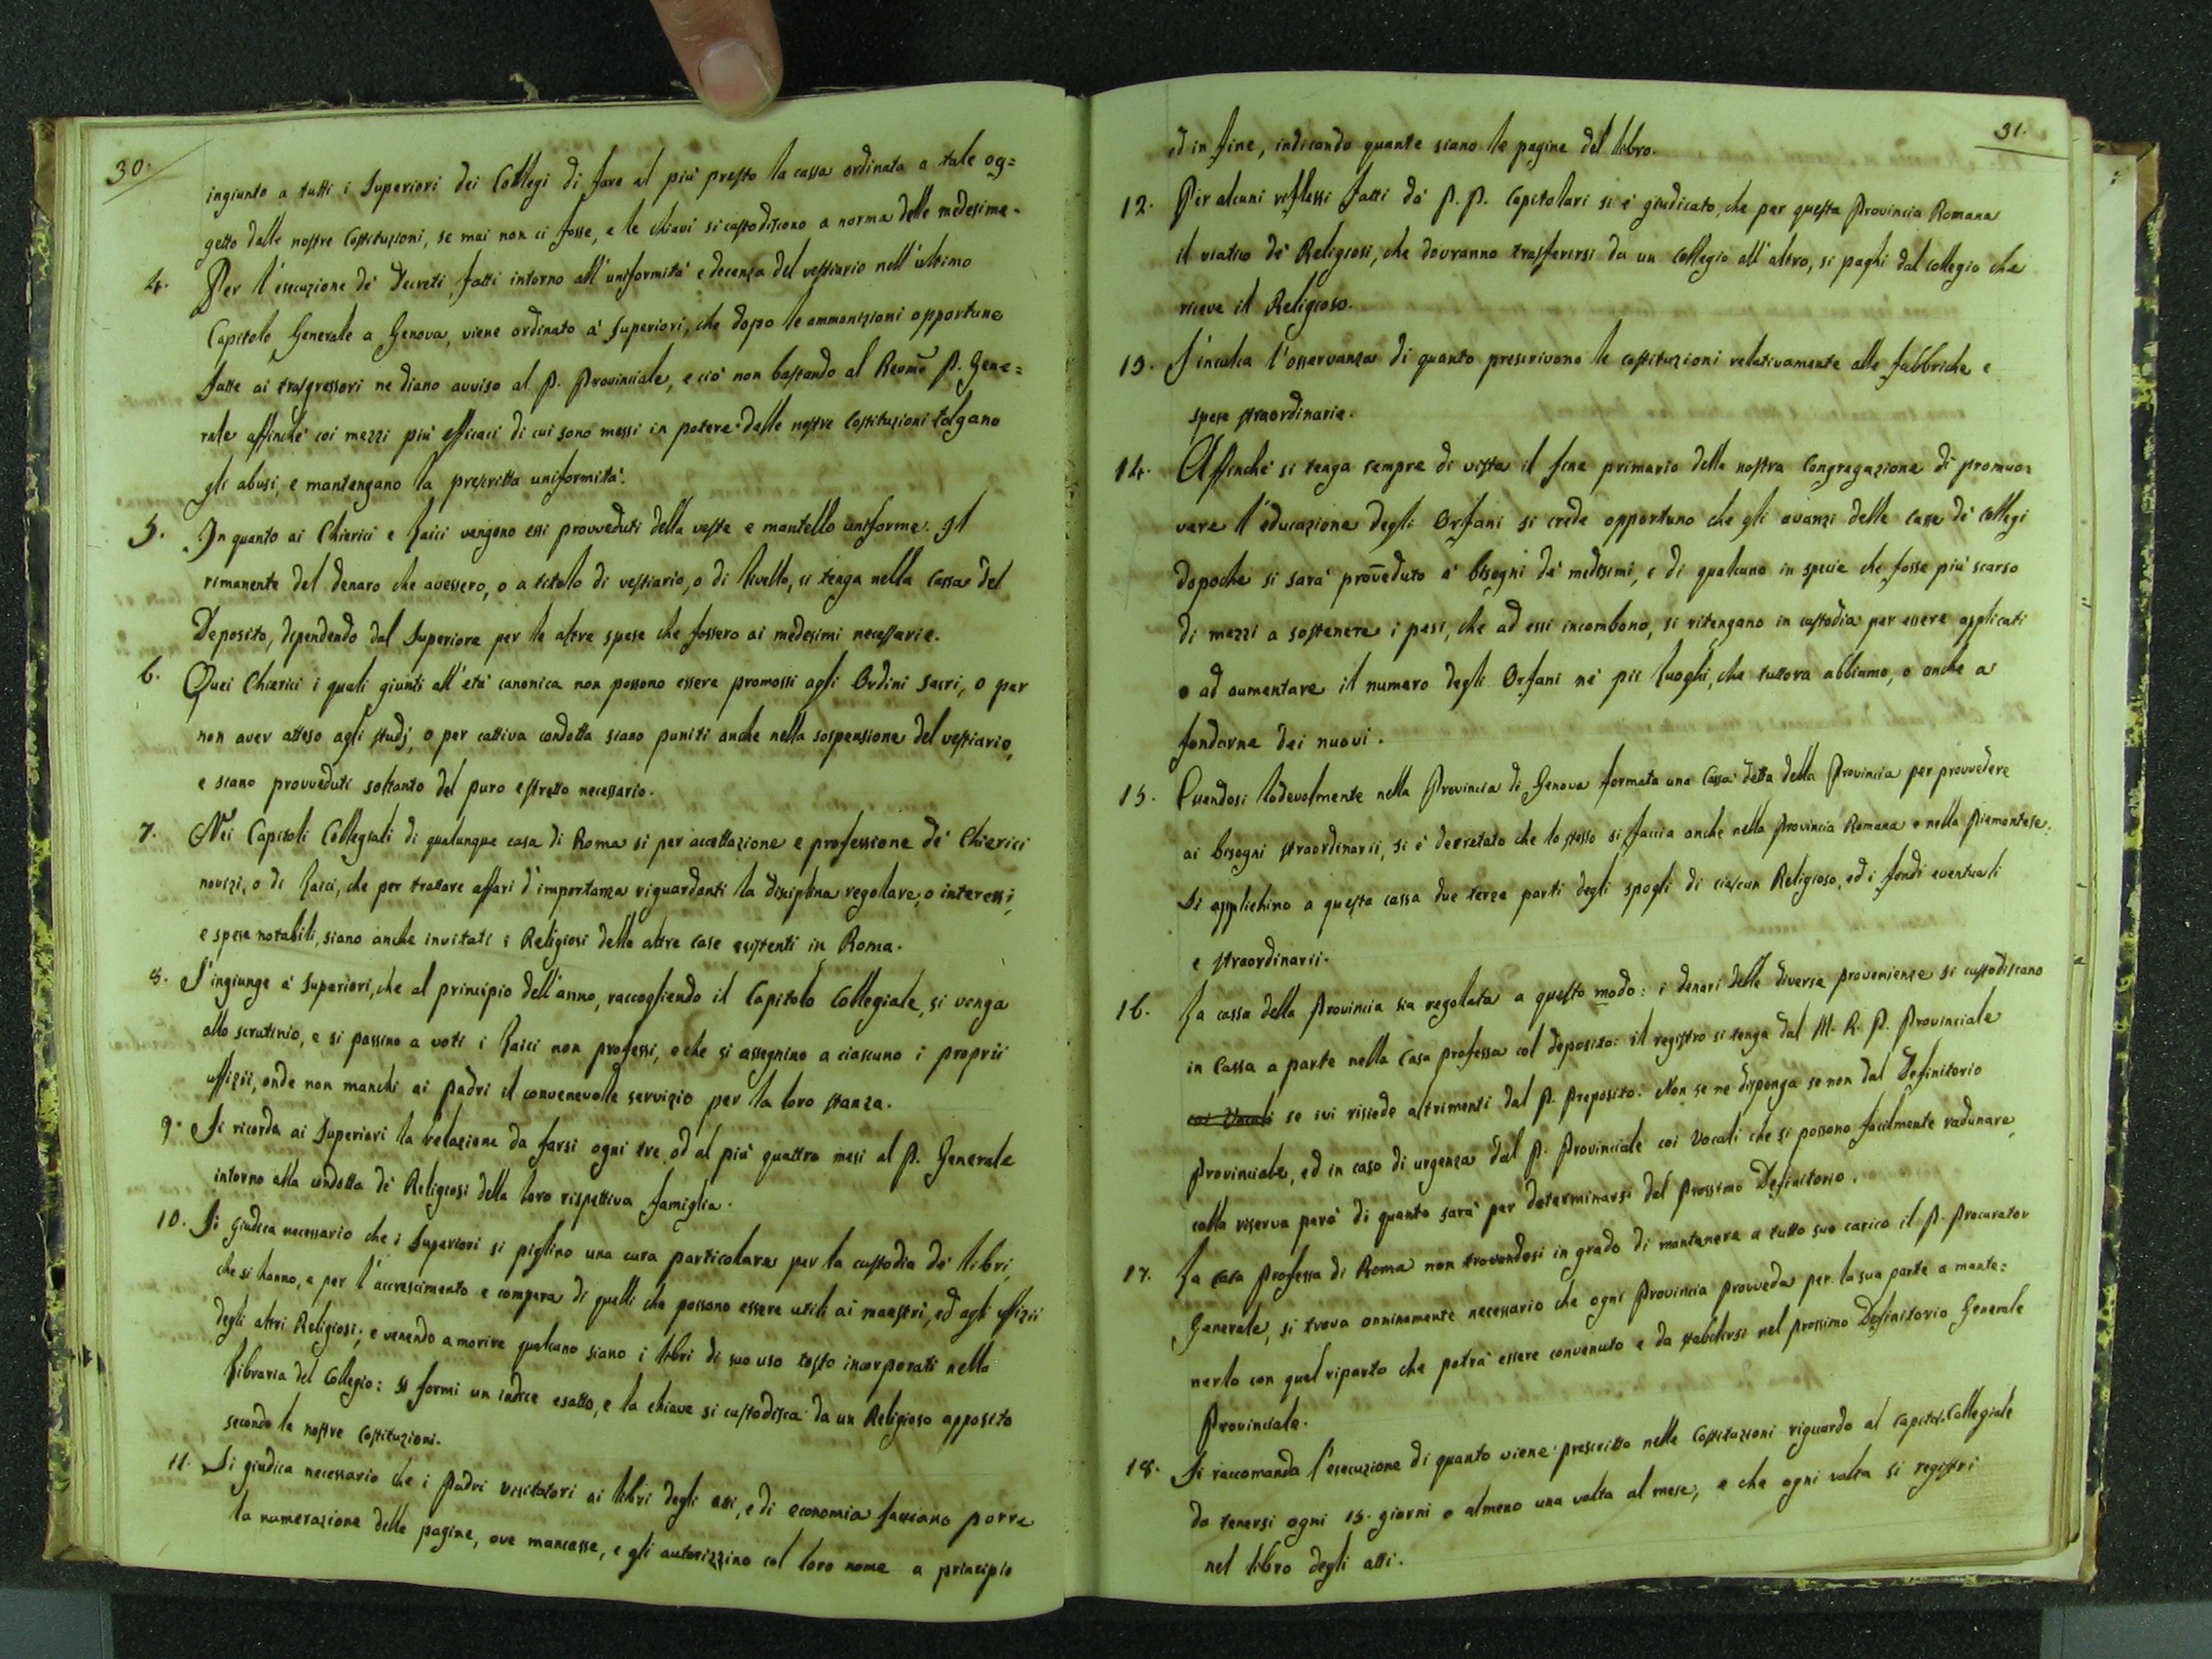 30.
ingiunto a tutti i Superiori dei Collegi di fare al più presto la cassa ordinata a tale og=
getto dalle nostre Costituzioni, se mai non ci fosse, e le chiavi si custodiscono a norma delle medesime.
4. Per l'esecuzione de' Decreti fatti intorno all'uniformità e decenza del vestiario nell'ultimo
Capitolo Generale a Genova, viene ordinato a' Superiori, che dopo le ammonizioni opportune
fatte ai trasgressori ne diano avviso al P. Provinciale, e ciò non bastando al Reomo P. Gene=
rale affinché coi mezzi più efficaci di cui sono messi in potere dalle nostre Costituzioni tolgano
gli abusi, e mantengano la prescritta uniformità.
5. In quanto ai Chierici e Laici vengono essi provveduti della veste e mantello uniforme. Il
rimanente del denaro che avessero, o a titolo di vestiario, o di livello, si tenga nella Cassa del
Deposito, dipendendo dal Superiore per le altre spese che fossero ai medesimi necessarie.
6. Quei Chierici i quali giunti all'età canonica non possono essere promossi agli Ordini Sacri, o per
non aver atteso agli studj, o per cattiva condotta siano puniti anche nella sospensione del vestiario,
e siano provveduti soltanto del puro e stretto necessario.
7. Nei Capitoli Collegiali di qualunque casa di Roma si per accettazione e professione de' Chierici
novizi, o di Laici, che per trattare affari d'importanza riguardanti la disciplina regolare, o interessi,
e spese notabili, siano anche invitati i Religiosi delle altre case esistenti in Roma.
8. S'ingiunge a' Superiori, che al principio dell'anno, raccogliendo il Capitolo Collegiale, si venga
allo scrutinio, e si passino a voti i Laici non professi, e che si assegnino a ciascuno i proprii
uffizii, onde non manchi ai Padri il convenevole servizio per la loro stanza.
9. Si ricorda ai Superiori la relazione da farsi ogni tre, od al più quattro mesi al P. Generale
intorno alla condotta de' Religiosi della loro rispettiva famiglia.
10. Si giudica necessario che i Superiori si piglino una cura particolare per la custodia de' libri,
che si hanno, e per l'accrescimento e compera di quelli che possono essere utili ai maestri, ed agli uffizii
degli altri Religiosi; e venendo a morire qualcuno siano i libri di suo uso tosto incorporati nella
Libraria del Collegio: Si formi un indice esatto, e la chiave si custodisca da un Religioso apposito
secondo le nostre Costituzioni.
11. Si giudica necessario che i Padri Visitatori ai libri degli atti, e di economia facciano porre
la numerazione delle pagine, ove mancasse, e gli autorizzino col loro nome a principio
31.
ed in fine, indicando quante siano le pagine del libro.
12. Per alcuni riflessi fatti da' P. P. Capitolari si è giudicato, che per questa Provincia Romana
il viatico de' Religiosi, che dovranno trasferirsi da un Collegio all'altro, si paghi dal collegio che
riceve il Religioso.
13. S'inculca l'osservanza di quanto prescrivono le costituzioni relativamente alle fabbriche e
spese straordinarie.
14. Affinché si tenga sempre di vista il fine primario della nostra Congregazione di promuo=
vere l'educazione degli Orfani si crede opportuno che gli avanzi delle Casse de' Collegi
dopoche si sarà proveduto a' bisogni de' medesimi, e di qualcuno in specie che fosse più scarso
di mezzi a sostenere i pesi, che ad essi incombono, si ritengano in custodia per essere applicati
o ad aumentare il numero degli Orfani ne' pii luoghi, che tuttora abbiamo, o anche a
fondarne dei nuovi.
15. Essendosi lodevolmente nella Provincia di Genova formata una Cassa detta della Provincia per provvedere
ai bisogni straordinarii, si è decretato che lo stesso si faccia anche nella Provincia Romana e nella Piemontese.
Si applichino a questa cassa due terze parti degli spogli di ciascun Religioso, ed i fondi eventuali
e straordinarii.
16. La cassa della Provincia sia regolata a questo modo: i denari delle diverse provenienze si custodiscano
in Cassa a parte nella Casa professa col deposito: il registro si tenga dal M. R. P. Provinciale
coi Vocali se ivi risiede altrimenti dal P. Preposito. Non se ne disponga se non dal Definitorio
Provinciale, ed in caso di urgenza dal P. Provinciale coi Vocali che si possono facilmente radunare,
colla riserva però di quanto sarà per determinarsi dal prossimo Definitorio.
17. La Casa Professa di Roma non trovandosi in grado di mantenere a tutto suo carico il P. Procurator
Generale, si trova onninamente necessario che ogni Provincia provveda per la sua parte a mante=
nerlo con quel riparto che potrà essere convenuto e da stabilirsi nel prossimo Definitorio Generale
Provinciale.
18. Si raccomanda l'esecuzione di quanto viene prescritto nelle Costituzioni riguardo al Capitol. Collegiale
da tenersi ogni 15. giorni o almeno una volta al mese, e che ogni volta si registri
nel libro degli atti.